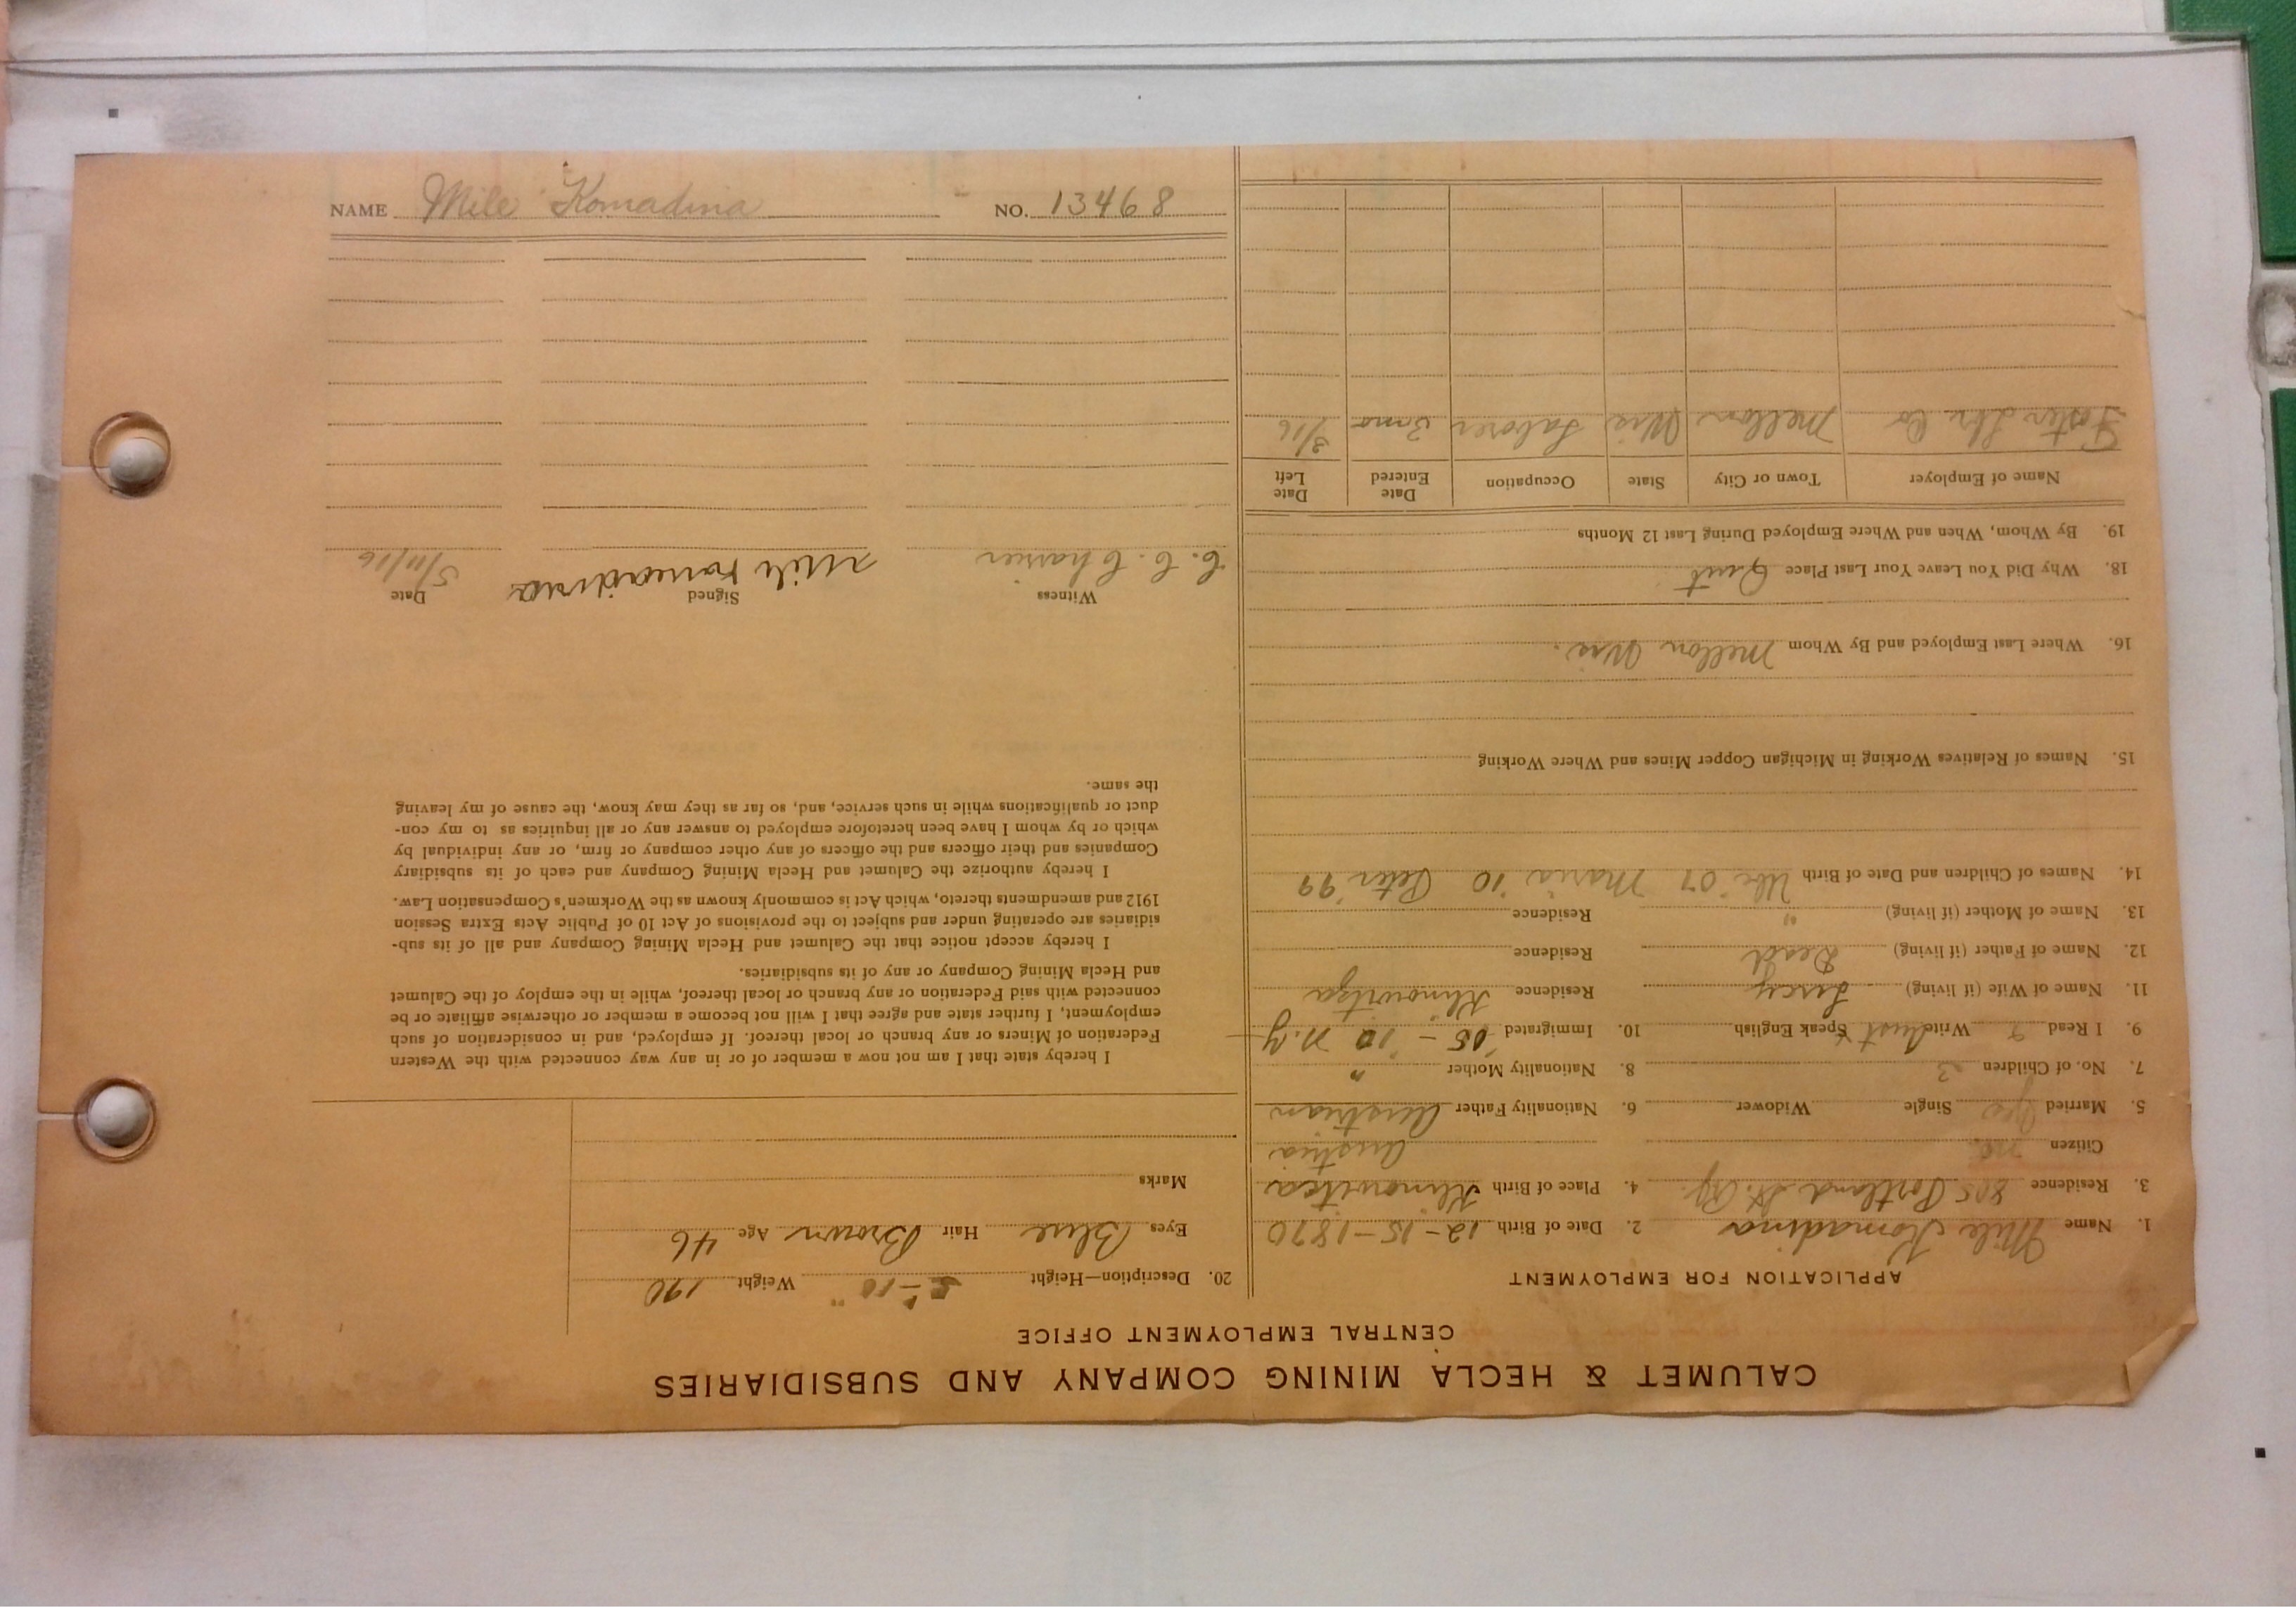 NAME Mile Komadina NO. 13468
CALUMET & HECLA MINING COMPANY AND SUBSIDIARIES
CENTRAL EMPLOYMENT OFFICE
APPLICATION FOR EMPLOYMENT
1. Name Mile Komadina 2. Date of Birth 12-15-1870
3. Residence 805 Portland St. 4. Place of Birth Klinowitza
Citizen no. Austria
5. Married Yes Single Widower 6. Nationality Father Austrian
7. No. of Children 3 8. Nationality Mother "
9. I Read Write Aust Speak English 10. Immigrated '05 - '10 N.Y
11. Name of Wife (if living) Lucy Residence Klinowitza
12. Name of Father (if living) Dead Residence
13. Name of Mother (if living) " Residence
14. Names of Children and Date of Birth '07 Maria '10 Peter '99
15. Names of Relatives Working in Michigan Copper Mines and Where Working
16. Where Last Employed and By Whom Mellon Wis.
18. Why Did You Leave Your Last Place Quit
19. By Whom, When and Where Employed During Last 12 Months
Name of Employer Town or City State Occupation Date Entered Date Left
Foster Lbr. Co Mellon Wis Laborer 3 mo 3/16
20. Description—Height 5'-10" Weight 190
Eyes Blue Hair Brown Age 46
Marks
I hereby state that I am not now a member of or in any way connected with the Western
Federation of Miners or any branch or local thereof. If employed, and in consideration of such
employment, I further state and agree that I will not become a member or otherwise affiliate or be
connected with said Federation or any branch or local thereof, while in the employ of the Calumet
and Hecla Mining Company or any of its subsidiaries.
I hereby accept notice that the Calumet and Hecla Mining Company and all of its sub-
sidiaries are operating under and subject to the provisions of Act 10 of Public Acts Extra Session
1912 and amendments thereto, which Act is commonly known as the Workmen's Compensation Law.
I hereby authorize the Calumet and Hecla Mining Company and each of its subsidiary
Companies and their officers and the officers of any other company or firm, or any individual by
which or by whom I have been heretofore employed to answer any or all inquiries as to my con-
duct or qualifications while in such service, and, so far as they may know, the cause of my leaving
the same.
Witness Signed Date
C. C. Charrier Mile Komadina 5/11/16